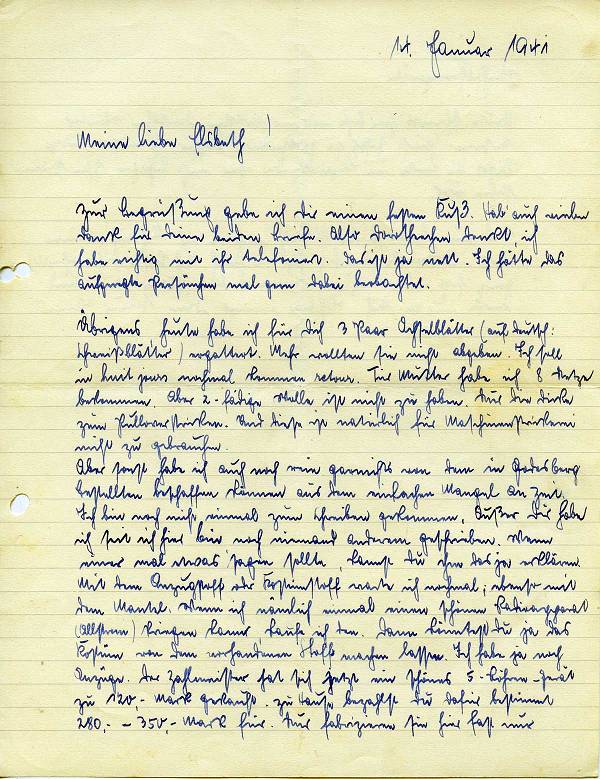 14. Januar 1941
Meine liebe Elsbeth!
Zur Begrüßung gebe ich Dir einen festen Kuß. Hab' auch vielen
Dank für Deine beiden Briefe. Also Dorthchen denkt, ich
habe richtig mit ihr telefoniert. Das ist ja nett. Ich hätte das
aufgeregte Persönchen mal gern dabei beobachtet.
Übrigens heute habe ich für Dich 3 Paar Achselblätter (auf deutsch:
Schweißblätter) ergattert. Mehr wollten sie nicht abgeben. Ich soll
in huit jours nochmal kommen retour. Für Mutter habe ich 8 Netze
bekommen. Aber 2-fädige Wolle ist nicht zu haben. Nur die dicke
zum Pulloverstricken. Und diese ist natürlich für Maschinenstrickerei
nicht zu gebrauchen.
Aber sonst habe ich auch noch rein garnichts von dem in Godesberg
bestellten beschaffen können aus dem einfachen Mangel an Zeit.
Ich bin noch nicht einmal zum Schreiben gekommen. Außer Dir habe
ich seit ich hier bin noch niemand anderem geschrieben. Wenn
einer mal etwas sagen sollte, kannst Du ihm das ja erklären.
Mit dem Anzugstoff oder Kostümstoff warte ich nochmal; ebenso mit
dem Mantel. Wenn ich nämlich einmal einen schönen Radioapparat
(Allstrom) kriegen kann, kaufe ich den. Dann könntest Du ja das
Kostüm von dem vorhandenen Stoff machen lassen. Ich habe ja noch
Anzüge. Der Zahlmeister hat sich jetzt ein schönes 5-Röhren-Gerät
zu 120,- Mark gekauft. Zu Hause bezahlst Du dafür bestimmt
280,- - 350,- Mark für. Nur fabrizieren sie hier fast nur